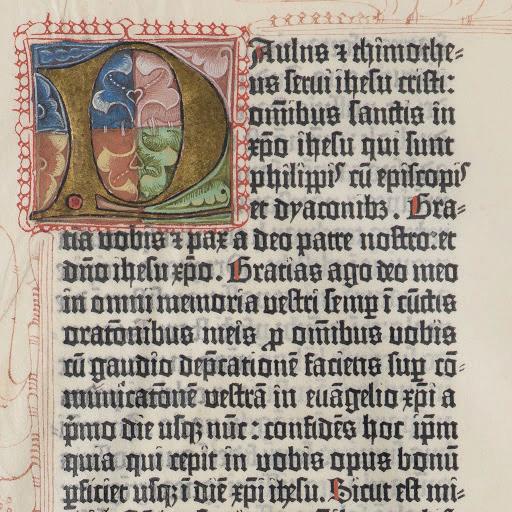 PAulus ⁊ thimothe-
us serui ihesu cristi:
om̄ibus sanctis in
xp̄o ihesu qui sunt
philippis cū episcopis
et dyaconibꝫ. Gra-
tia vobis ⁊ pax a deo patre nostro: et
dn̄o ihesu xp̄o. Gratias ago deo meo
in omni memoria vestri semꝑ ī cūctis
oratōnibus meis ꝓ om̄ibus vobis
cū gaudio dep̄catione faciens suꝑ cō-
municatōne vestrā in euāgelio xp̄i a
p̄mo die usqꝫ nūc: confidēs hoc ip̄m
quia qui cepit in vobis opus bonū
ꝑficiet usqꝫ ī diē xp̄i ihesu. Sicut est mi-